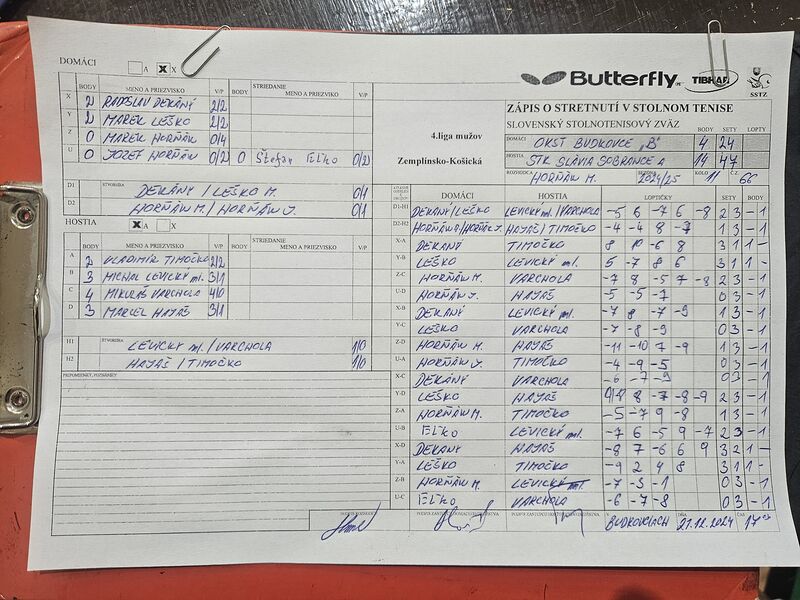 DOMÁCI A X X
Butterfly TIBHAR SSTZ
BODY MENO A PRIEZVISKO V/P BODY STRIEDANIE MENO A PRIEZVISKO V/P
X 2 RADOSLAV DEKÁNY 2/2
Y 2 MAREK LEŠKO 2/2
Z 0 MAREK HORŇÁK 0/4
U 0 JOZEF HORŇÁK 0/2 0 Štefan Eľko 0/2
ŠTVORHRA
D1 DEKÁNY / LEŠKO M. 0/1
D2 HORŇÁK M. / HORŇÁK J. 0/1
4.liga mužov
Zemplínsko-Košická
ZÁPIS O STRETNUTÍ V STOLNOM TENISE
SLOVENSKÝ STOLNOTENISOVÝ ZVÄZ BODY SETY LOPTY
DOMÁCI OKST BUDKOVCE „B" 4 24
HOSTIA STK SLÁVIA SOBRANCE A 14 47
ROZHODCA HORŇÁK M. 2024/25 KOLO 11 Č.Z. 66
HOSTIA A X X
BODY MENO A PRIEZVISKO V/P BODY STRIEDANIE MENO A PRIEZVISKO V/P
A 2 VLADIMÍR TIMOČKO 2/2
B 3 MICHAL LEVICKÝ ml. 3/1
C 4 MIKULÁŠ VARCHOLA 4/0
D 3 MARCEL HAJAŠ 3/1
ŠTVORHRA
H1 LEVICKÝ ml. / VARCHOLA 1/0
H2 HAJAŠ / TIMOČKO 1/0
PRIPOMIENKY, POZNÁMKY
DOMÁCI HOSTIA LOPTIČKY SETY BODY
D1-H1 DEKÁNY/LEŠKO LEVICKÝ ml./VARCHOLA -5 6 -7 6 -8 2 3 - 1
D2-H2 HORŇÁK M./HORŇÁK J. HAJAŠ/TIMOČKO -4 -4 8 -7 1 3 - 1
X-A DEKÁNY TIMOČKO 8 10 -6 8 3 1 1 -
Y-B LEŠKO LEVICKÝ ml. 5 -7 8 6 3 1 1 -
Z-C HORŇÁK M. VARCHOLA -7 8 -5 7 -8 2 3 - 1
U-D HORŇÁK J. HAJAŠ -5 -5 -7 0 3 - 1
X-B DEKÁNY LEVICKÝ ml. -7 8 -7 -9 1 3 - 1
Y-C LEŠKO VARCHOLA -7 -8 -9 0 3 - 1
Z-D HORŇÁK M. HAJAŠ -11 -10 7 -9 1 3 - 1
U-A HORŇÁK J. TIMOČKO -4 -9 -5 0 3 - 1
X-C DEKÁNY VARCHOLA -6 -7 -9 0 3 - 1
Y-D LEŠKO HAJAŠ 8 -7 -8 -9 2 3 - 1
Z-A HORŇÁK M. TIMOČKO -5 -7 9 -8 1 3 - 1
U-B Eľko LEVICKÝ ml. -7 6 -5 9 -7 2 3 - 1
X-D DEKÁNY HAJAŠ -8 7 -6 6 9 3 2 1 -
Y-A LEŠKO TIMOČKO -9 2 4 8 3 1 1 -
Z-B HORŇÁK M. LEVICKÝ ml. -7 -3 -1 0 3 - 1
U-C Eľko VARCHOLA -6 -7 -8 0 3 - 1
V BUDKOVCIACH DŇA 21.12.2024 ČAS 17